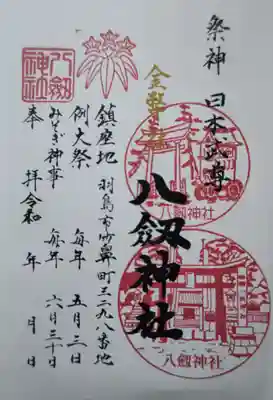 祭神 日本武尊
金幣社
八剱神社
八剱神社
八剱神社
八剱神社
鎮座地 羽島市竹鼻町三二九八番地
例大祭 毎年 五月三日
みそぎ神事 毎年 六月三十日
奉拝 令和 年 月 日